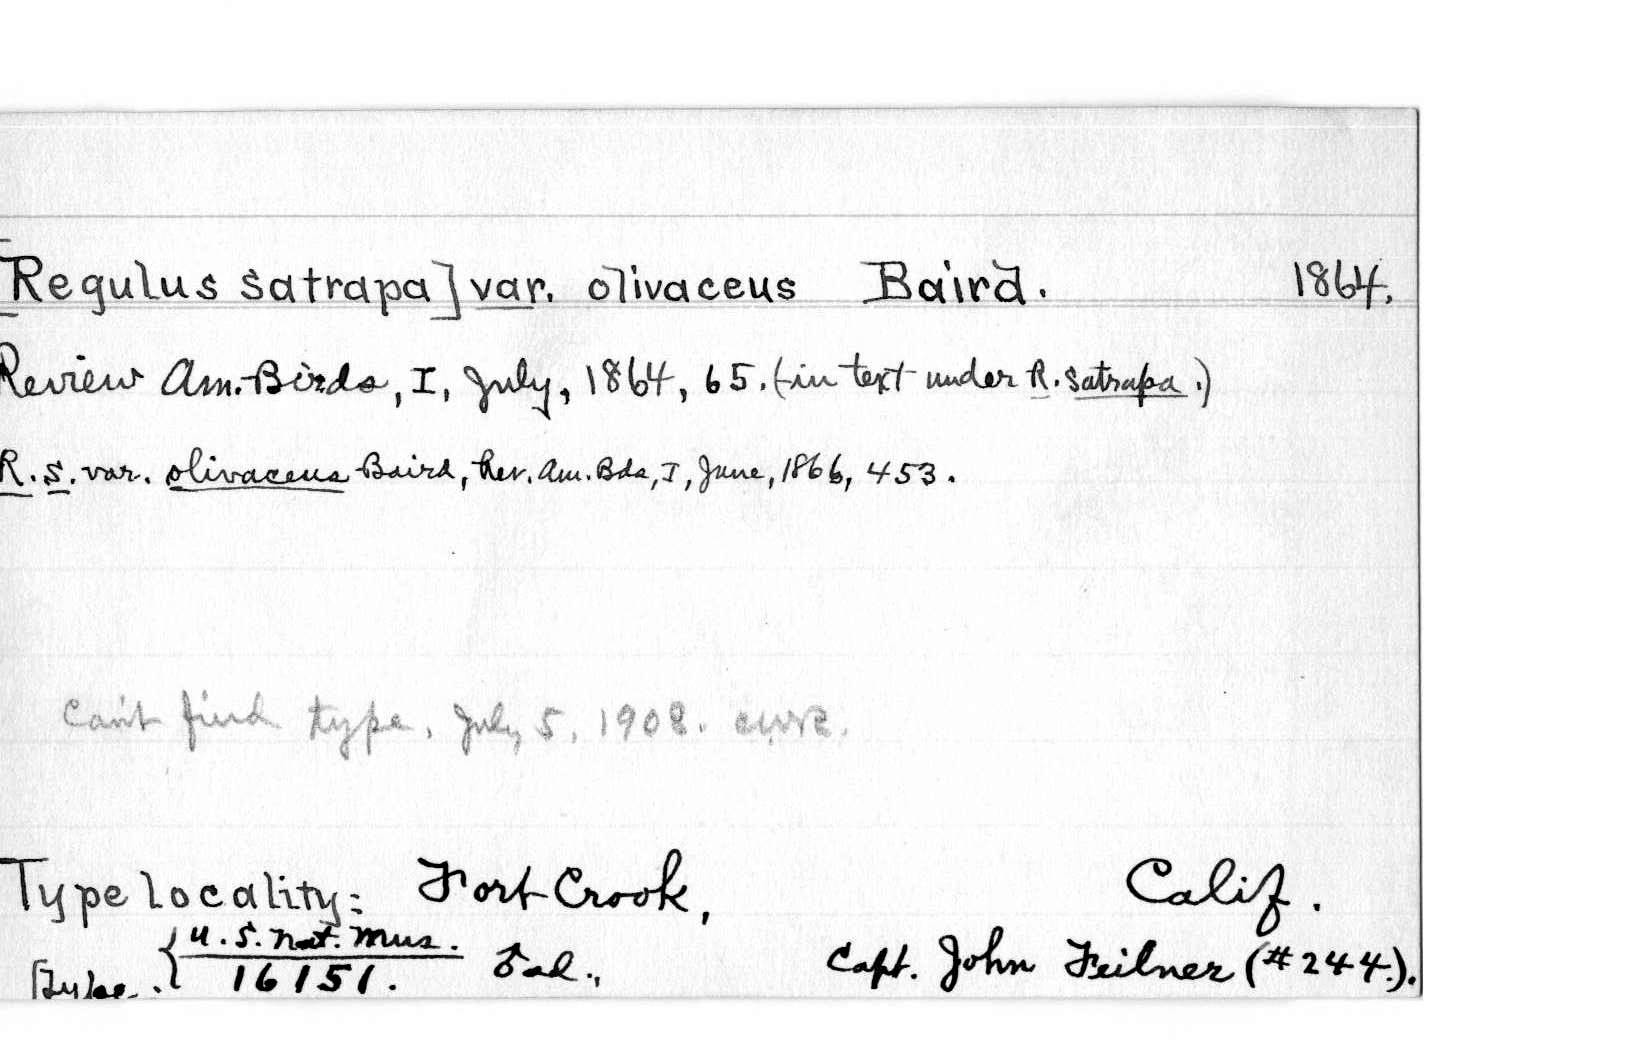 [Regulus satrapa] var. olivaceus Baird. 1864.
Review Am. Birds, I, July, 1864, 65. (in text under R. satrapa.)
R. s. var. olivaceus Baird, Rev. Am. Bds, I, June, 1866, 453.
Can't find type, July 5, 1908.
Type locality: Fort Crook, Calif.
U.S. Nat. Mus.
[Type. { 16151. ad., Capt. John Feilner (#244).